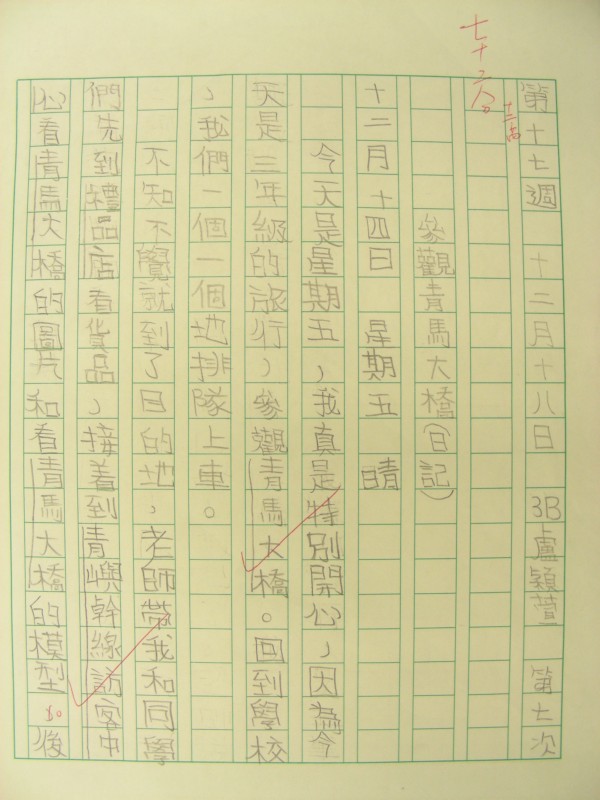 第十七週 十二月十八日 3B 盧穎萱 第七次
七十二分
參觀青馬大橋(日記)
十二月十四日 星期五 晴
今天是星期五,我真是特別開心,因為今
天是三年級的旅行,參觀青馬大橋。回到學校
,我們一個一個地排隊上車。
不知不覺就到了目的地,老師帶我和同學
們先到禮品店看貨品,接着到青嶼幹線訪客中
心看青馬大橋的圖片和看青馬大橋的模型。後